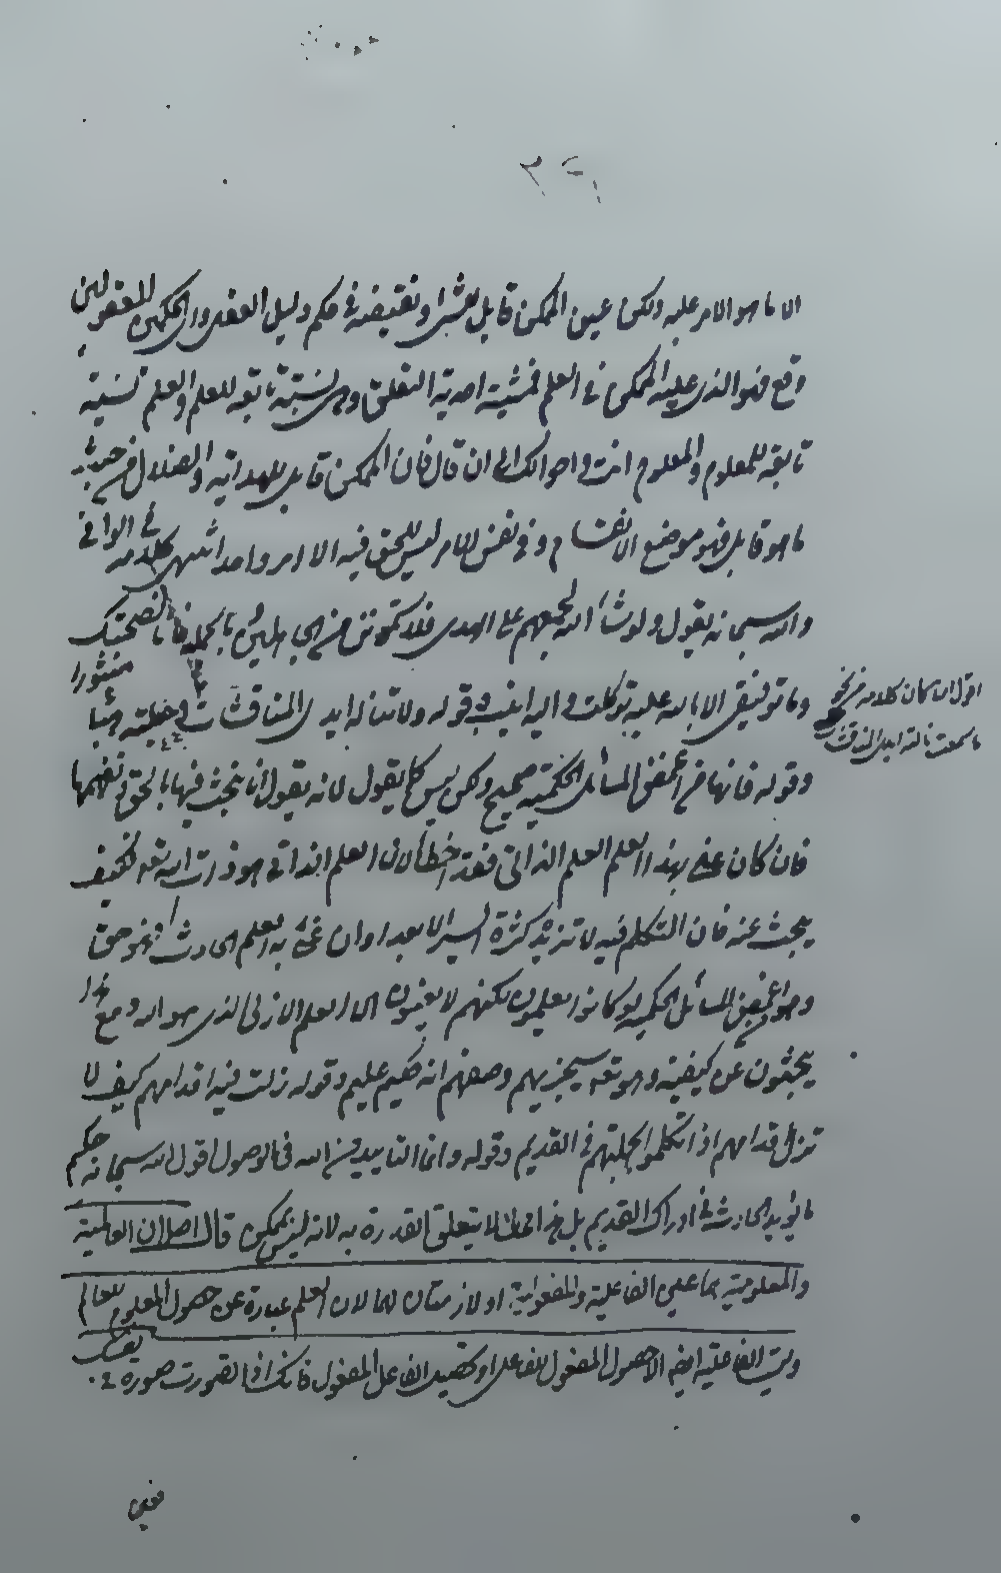 ٣٤١
الا ما هو الامر عليه ولكن عين الممكن قابل للشئ او نقيضه في حكم دليل العقل واي الحكمين المعقولين
وقع فهو الذي عليه الممكن في العلم فمشيته احدية التعلق وهي نسبة تابعة للعلم والعلم نسبة
تابعة للمعلوم والمعلوم انت واحوالك الى ان قال فان الممكن قابل للهداية والضلال من حيث
ما هو قابل فهو موضع الانقسام وفي نفس الامر ليس للحق فيه الا امر واحد انتهى كلامه في الوافي
والله سبحانه يقول ولو شاء الله لجمعهم على الهدى فلا تكونن من الجاهلين بالجملة فانا نصحتك
وما توفيقي الا بالله عليه توكلت واليه انيب وقوله ولا تناله ايدي المناقشات جعلته هباء منثورا
اقول لما كان كلامه من نحو
ما سمعت نالته ايدي المناقشات
وقوله فانها من اغمض المسائل الحكمية صحيح ولكن ليس كما يقول لانه يقول انا نبحث فيها بالحق ونفهمها
فان كان عنى بهذا العلم العلم الذاتي فقد اخطأ لان العلم الذاتي هو ذات الله تعالى فكيف
يبحث عنه فان المتكلم فيه لا تزيده كثرة السير الا بعدا وان عنى به العلم الحادث فهو حق
وهو اغمض المسائل الحكمية لو كانوا يعلمون لكنهم لا يعنون الا العلم الازلي الذي هو الله ومع هذا
يبحثون عن كيفيته وهو تعالى سيجزيهم وصفهم انه حكيم عليم وقوله زلت فيه اقدامهم كيف لا
تزل اقدامهم اذا تكلموا بجهلهم في القديم وقوله وانما التاييد من الله في الوصول اقول الله سبحانه حكيم
ما يؤيد الحادث في ادراك القديم بل هذا محال لا يتعلق القدرة به لانه ليس بممكن قال اصل ان العالمية
والمعلومية بما عين الفاعلية والمفعولية او لازمتان لهما لان العلم عبارة عن حصول المعلوم للعالم
وليت الفاعلية ايضا الا حصول المفعول للفاعل او تحصيل الفاعل المفعول فانك اذا تصورت صورة في نفسك